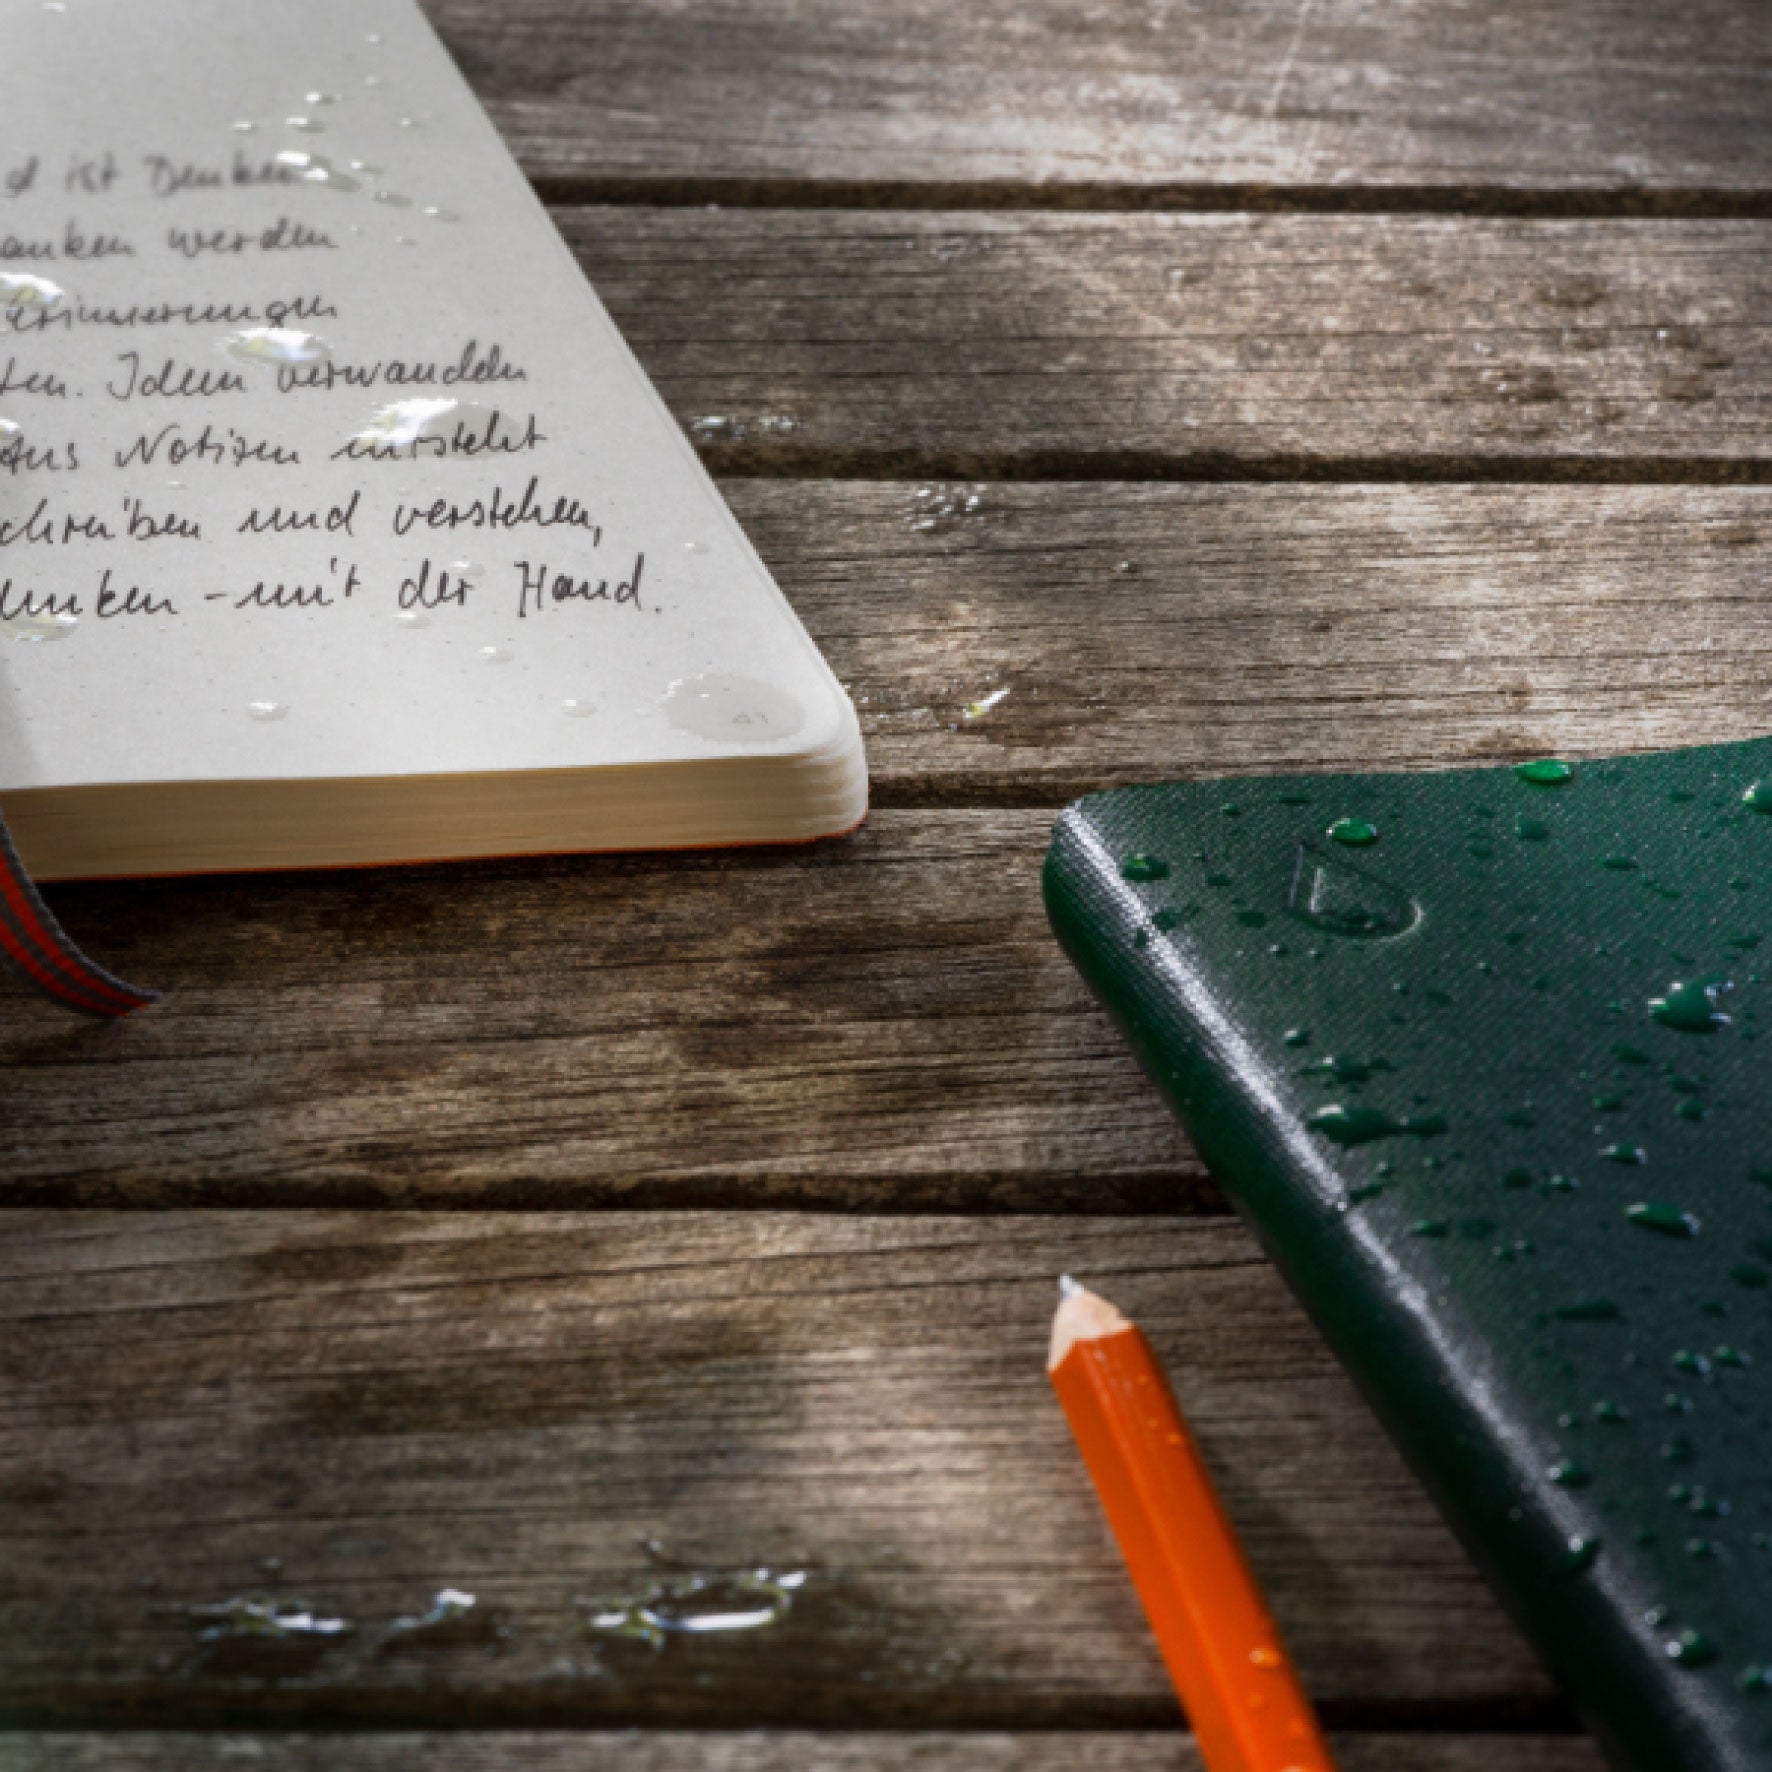 d ist Denken
anken werden
Erinnerungen
ten. Ideen verwandeln
Aus Notizen entsteht
chreiben und verstehen,
denken - mit der Hand.
41